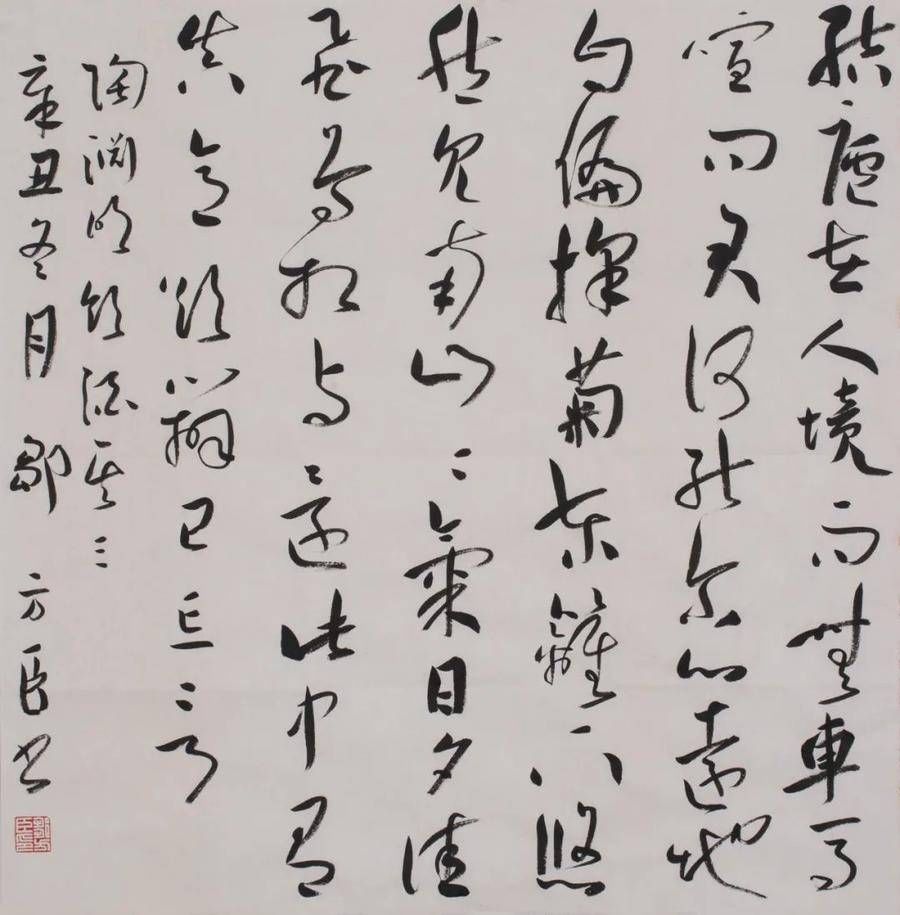 結廬在人境而無車馬
喧问君何能尔心遠地
自偏採菊东籬下悠
然見南山〻氣日夕佳
飞鸟相与還此中有
真意欲辨已忘言
陶渊明饮酒其三
辛丑冬月鄒方臣书